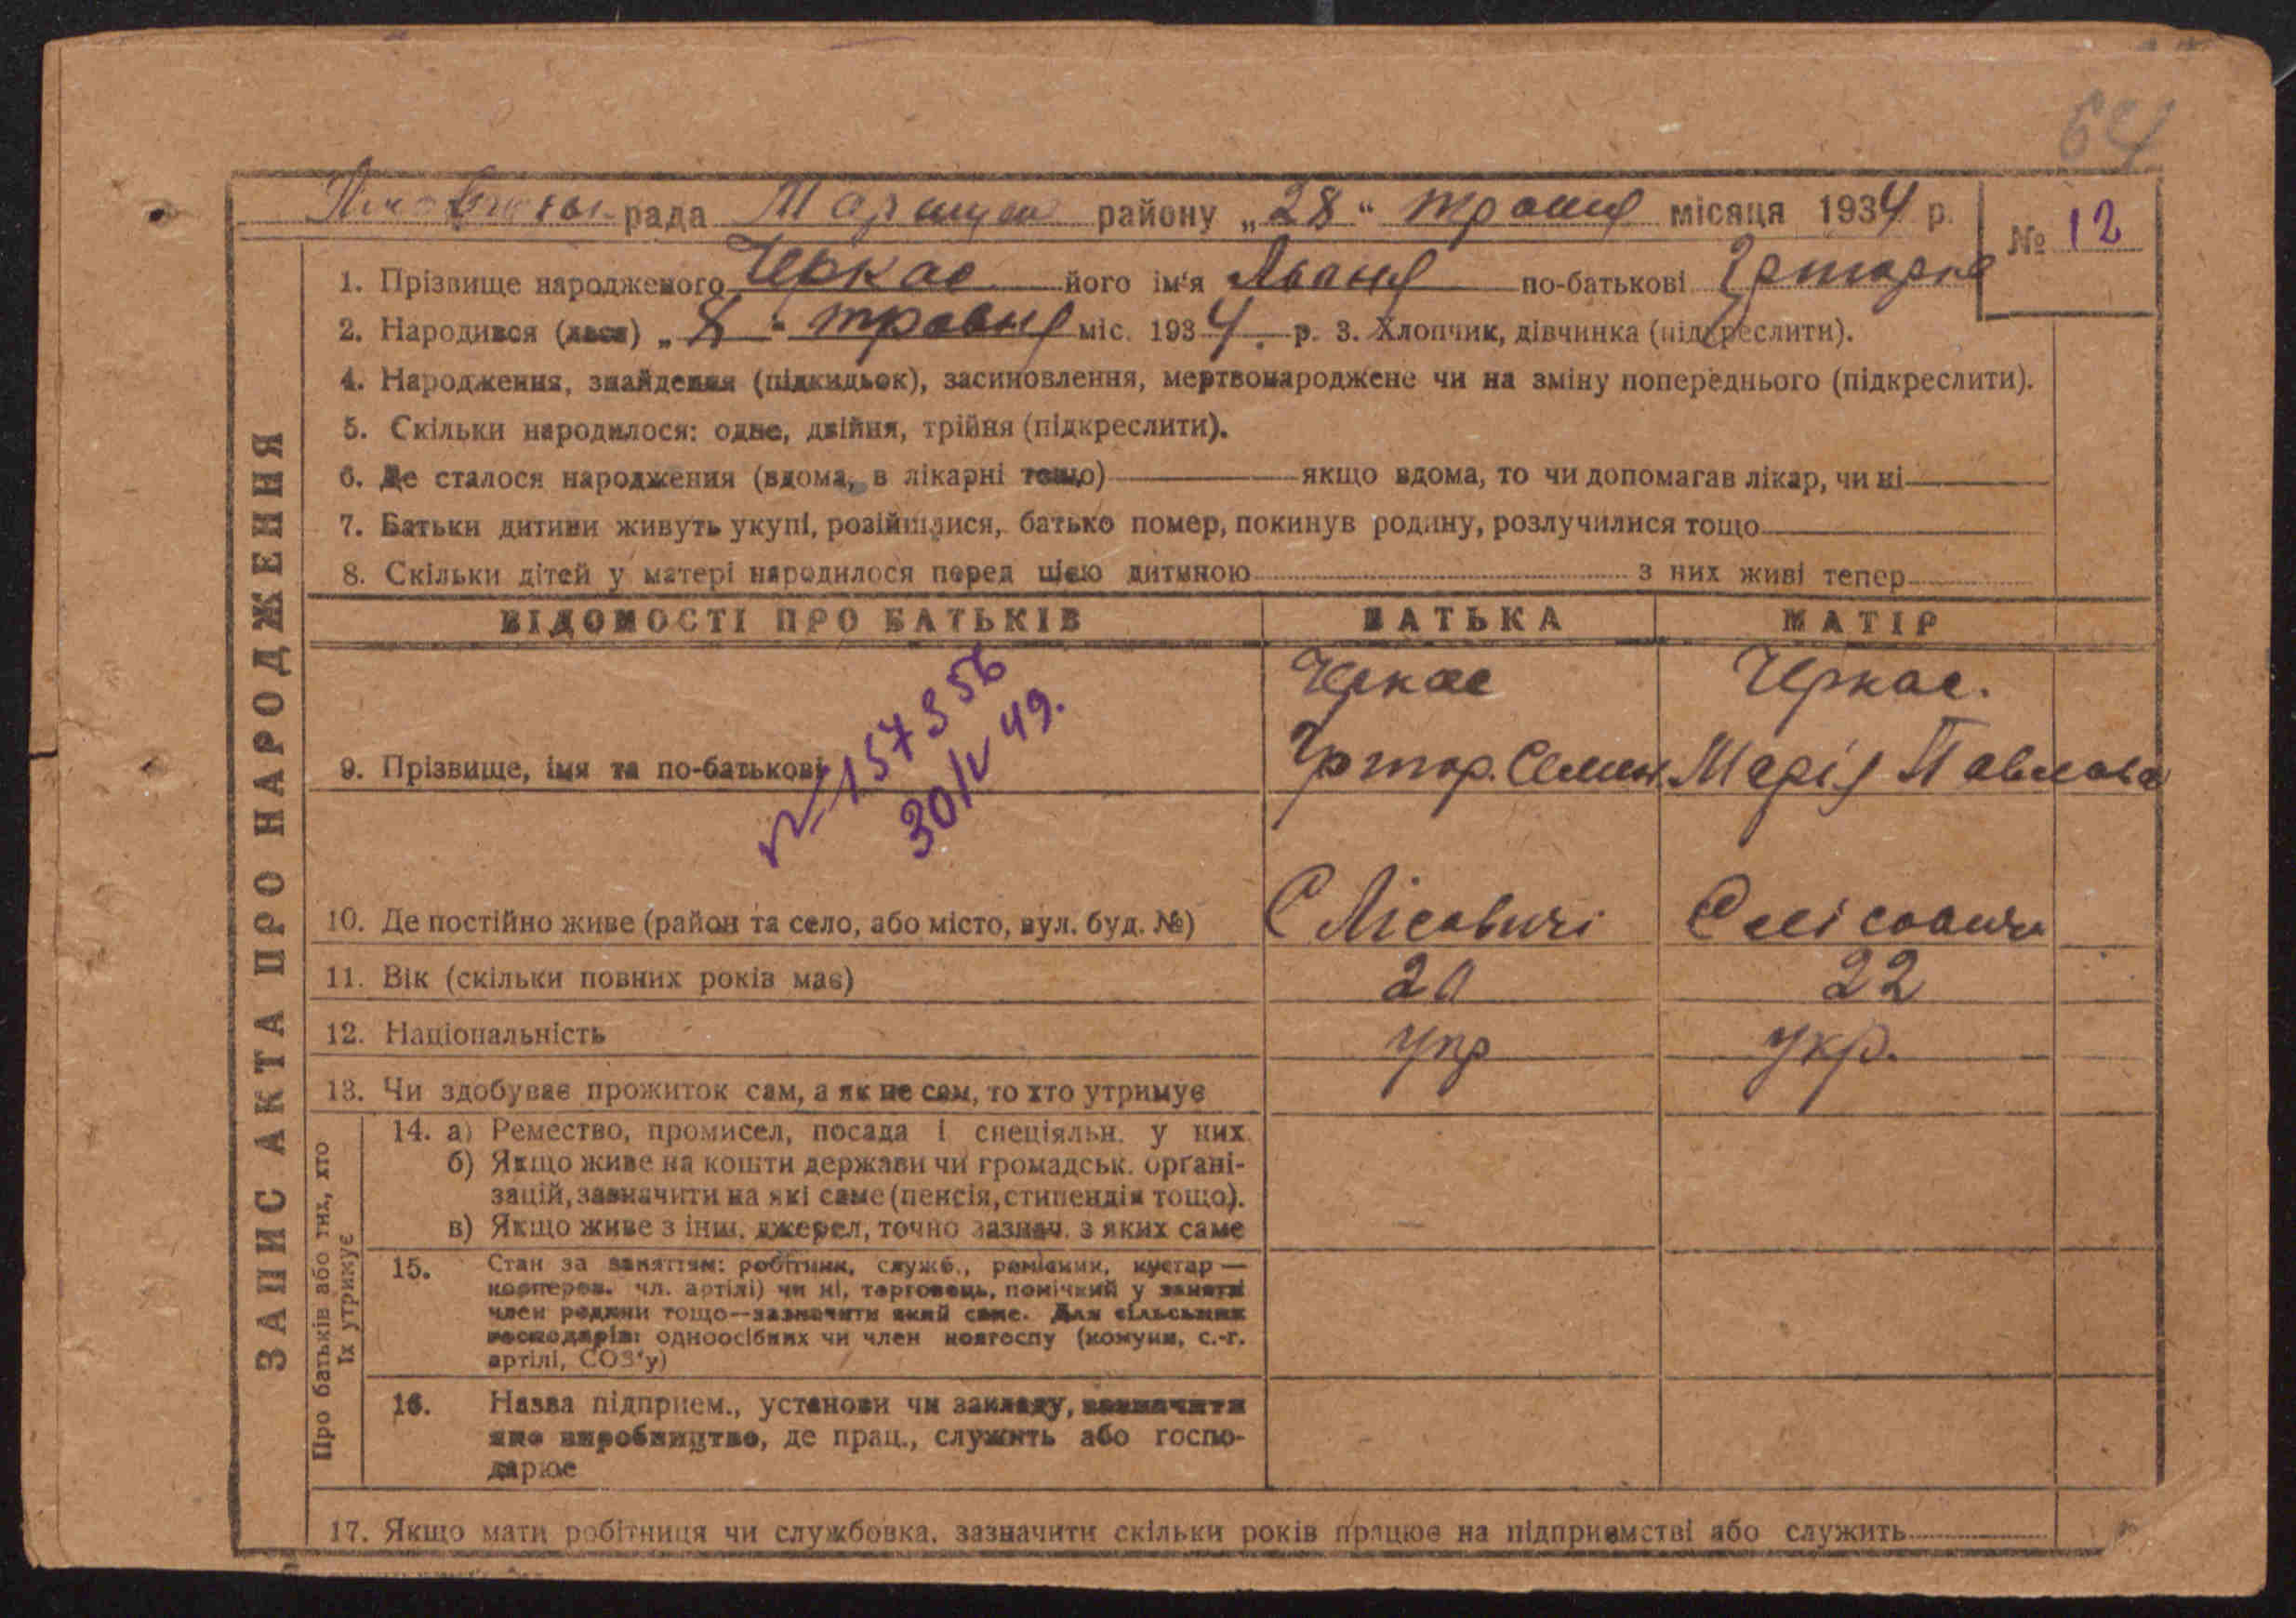 64
рада Таращан району „28“ травня місяця 1934 р.
№ 12
1. Прізвище народженого Черкас його ім'я по-батькові
2. Народився (лася) „8“ травня міс. 1934 р. 3. Хлопчик, дівчинка (підкреслити).
4. Народження, знайдення (підкидьок), засиновлення, мертвонароджене чи на зміну попереднього (підкреслити).
5. Скільки народилося: одне, двійня, трійня (підкреслити).
6. Де сталося народження (вдома, в лікарні тощо) якщо вдома, то чи допомагав лікар, чи ні
7. Батьки дитини живуть укупі, розійшлися, батько помер, покинув родину, розлучилися тощо
8. Скільки дітей у матері народилося перед цією дитиною з них живі тепер
ЗАПИС АКТА ПРО НАРОДЖЕННЯ
ВІДОМОСТІ ПРО БАТЬКІВ БАТЬКА МАТІР
Черкас Черкас.
9. Прізвище, імя та по-батькові Григор. Семен. Марія Павлова
№ 157356
30/V 49.
10. Де постійно живе (район та село, або місто, вул. буд. №) С Лісовичі С Лісовичі
11. Вік (скільки повних років має) 20 22
12. Національність укр укр.
13. Чи здобуває прожиток сам, а як не сам, то хто утримує
Про батьків або тих, хто
їх утримує
14. а) Ремество, промисел, посада і спеціяльн. у них
б) Якщо живе на кошти держави чи громадськ. органі-
зацій, зазначити на які саме (пенсія, стипендія тощо).
в) Якщо живе з інш. джерел, точно зазнач. з яких саме
15. Стан за заняттям: робітник, служб., ремісник, кустар —
коопером. чл. артілі) чи ні, торговець, помічний у занятті
член родини тощо—зазначити який саме. Для сільських
господарів: одноосібних чи член колгоспу (комуни, с.-г.
артілі, СОЗ'у)
16. Назва підприєм., установи чи закладу, зазначити
яке виробництво, де прац., служить або госпо-
дарює
17. Якщо мати робітниця чи службовка, зазначити скільки років працює на підприємстві або служить